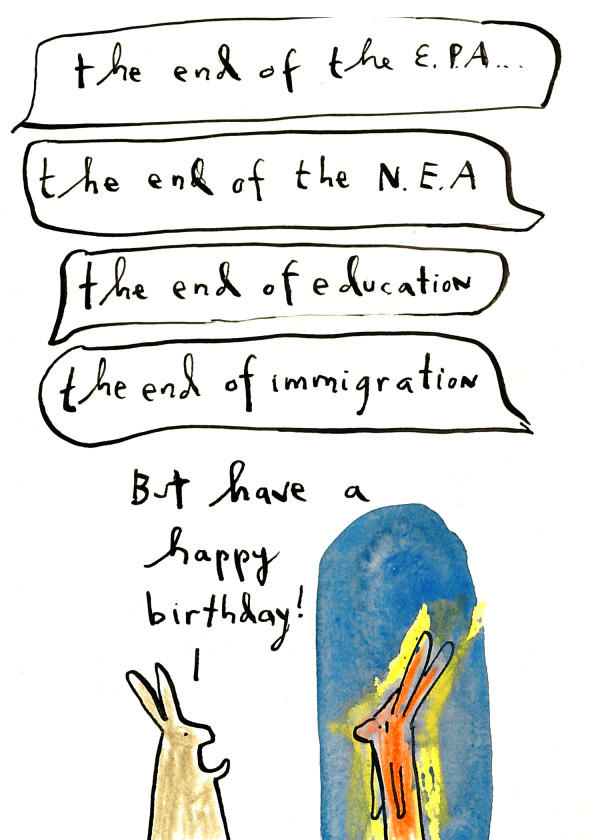 the end of the E.P.A...
the end of the N.E.A
the end of education
the end of immigration
But have a
happy
birthday!